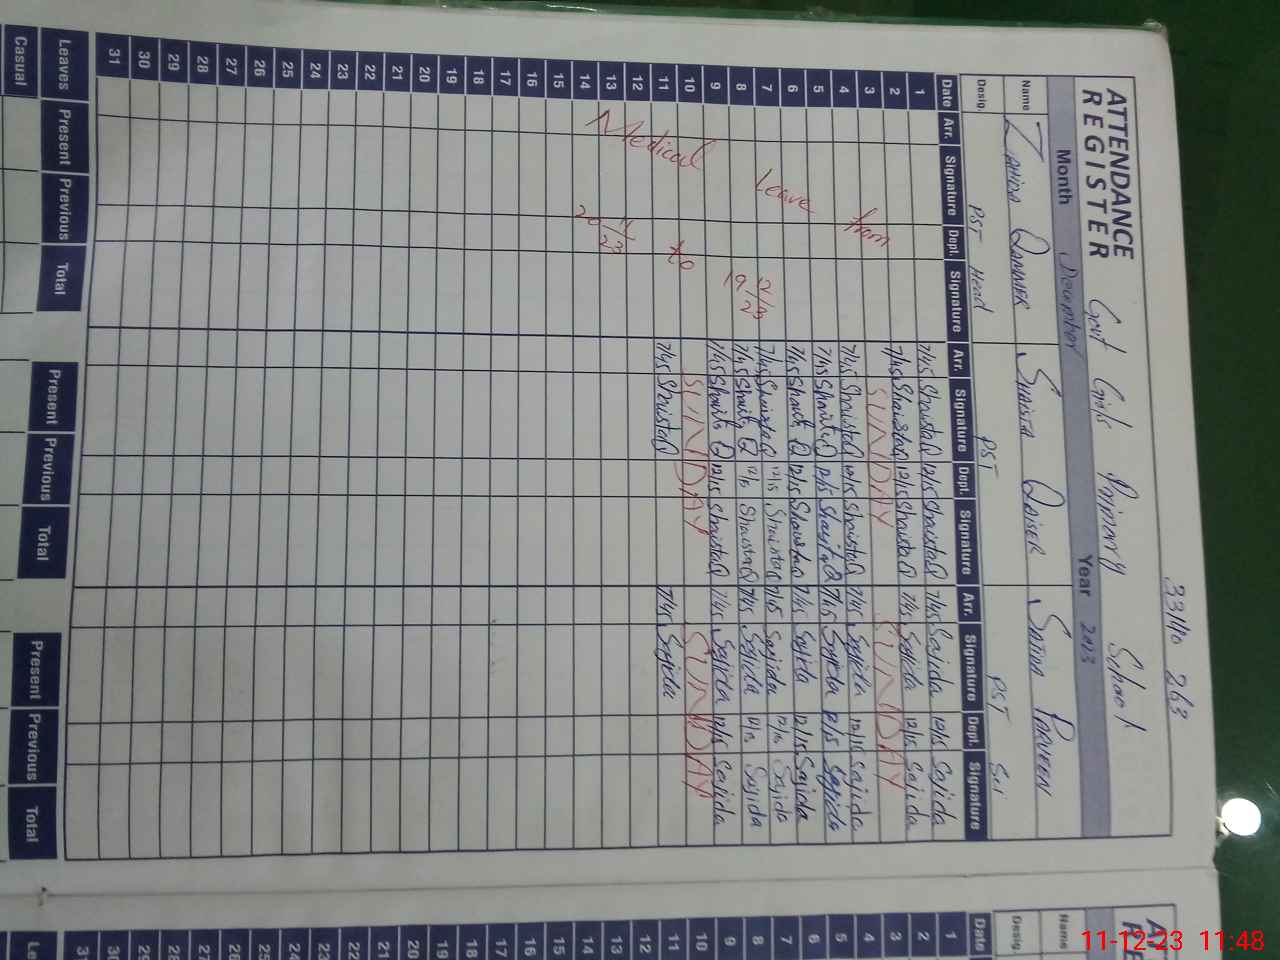 33140 263
ATTENDANCE REGISTER Govt Girls Primary School
Month December Year 2023
Name ZAHIDA QAMMER SHAISTA QAISER PARVEEN
Desig. PST Head PST PST
Date Arr. Signature Dept. Signature Arr. Signature Dept. Signature Arr. Signature Dept. Signature
1 7/45 ShaistaQ 12/15 ShaistaQ 7/45 Sajida 12/15 Sajida
2 7/45 ShaistaQ 12/15 ShaistaQ 7/45 Sajida 12/15 Sajida
3 SUNDAY SUNDAY
4 7/45 ShaistaQ 12/15 ShaistaQ 7/45 Sajida 12/15 Sajida
5 7/45 ShaistaQ 12/15 ShaistaQ 7/45 Sajida 12/15 Sajida
6 7/45 ShaistaQ 12/15 ShaistaQ 7/45 Sajida 12/15 Sajida
7 7/45 ShaistaQ 12/15 ShaistaQ 7/45 Sajida 12/15 Sajida
8 7/45 ShaistaQ 12/15 ShaistaQ 7/45 Sajida 12/15 Sajida
9 7/45 ShaistaQ 12/15 ShaistaQ 7/45 Sajida 12/15 Sajida
10 SUNDAY SUNDAY
11 7/45 ShaistaQ 7/45 Sajida
12
13
14
15
16
17
18
19
20
21
22
23
24
25
26
27
28
29
30
31
Medical Leave from
20/11/23 to 19/2/23
Leaves Present Previous Total Present Previous Total Present Previous Total
Casual
Name
Desig.
Date
1
2
3
4
5
6
7
8
9
10
11
12
13
14
15
16
17
18
19
20
21
22
23
24
25
26
27
28
29
30
11-12-23 11:48